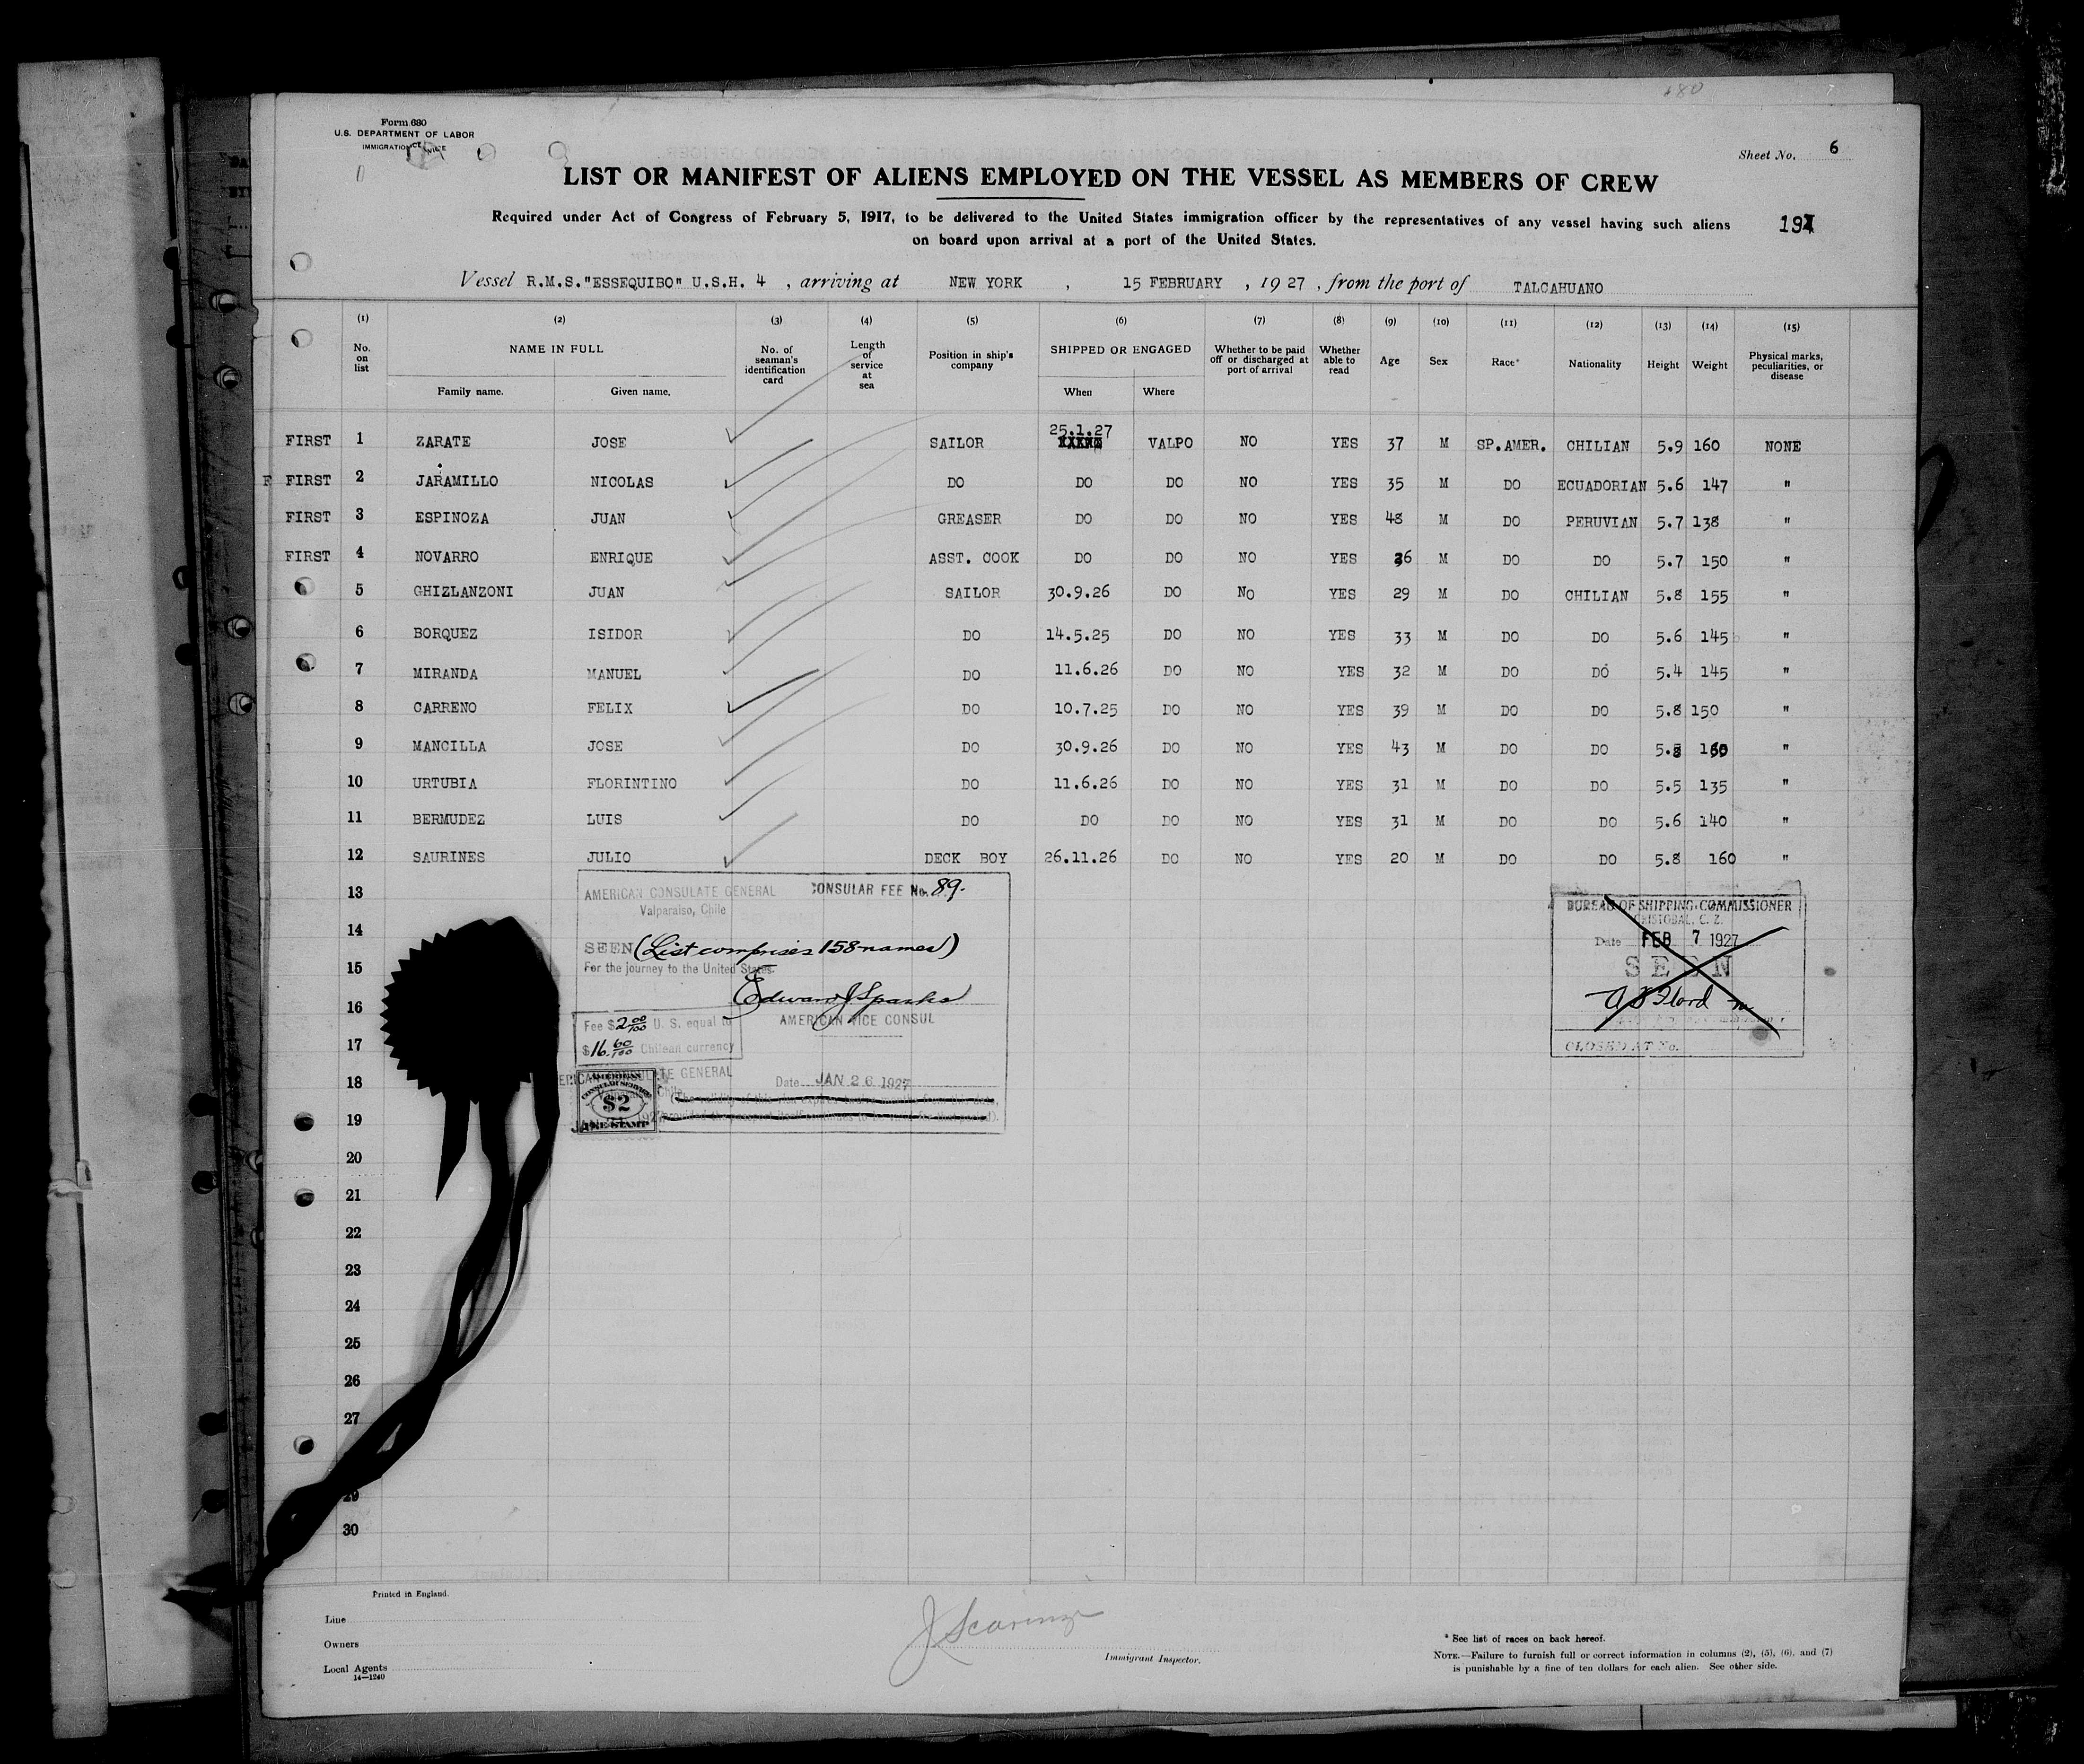 Form 680
U.S. DEPARTMENT OF LABOR
IMMIGRATION
Sheet No. 6
LIST OR MANIFEST OF ALIENS EMPLOYED ON THE VESSEL AS MEMBERS OF CREW
Required under Act of Congress of February 5, 1917, to be delivered to the United States immigration officer by the representatives of any vessel having such aliens
on board upon arrival at a port of the United States.
Vessel R.M.S."ESSEQUIBO" U.S.H. 4 , arriving at NEW YORK , 15 FEBRUARY , 19 27 , from the port of TALCAHUANO
(1) (2) (3) (4) (5) (6) (7) (8) (9) (10) (11) (12) (13) (14) (15)
No. on list NAME IN FULL Family name. Given name. No. of seaman's identification card Length of service at sea Position in ship's company SHIPPED OR ENGAGED When Where Whether to be paid off or discharged at port of arrival Whether able to read Age Sex Race* Nationality Height Weight Physical marks, peculiarities, or disease
FIRST 1 ZARATE JOSE SAILOR 25.1.27 VALPO NO YES 37 M SP.AMER. CHILIAN 5.9 160 NONE
FIRST 2 JARAMILLO NICOLAS DO DO DO NO YES 35 M DO ECUADORIAN 5.6 147 "
FIRST 3 ESPINOZA JUAN GREASER DO DO NO YES 48 M DO PERUVIAN 5.7 138 "
FIRST 4 NOVARRO ENRIQUE ASST. COOK DO DO NO YES 36 M DO DO 5.7 150 "
5 GHIZLANZONI JUAN SAILOR 30.9.26 DO No YES 29 M DO CHILIAN 5.8 155 "
6 BORQUEZ ISIDOR DO 14.5.25 DO NO YES 33 M DO DO 5.6 145 "
7 MIRANDA MANUEL DO 11.6.26 DO NO YES 32 M DO DO 5.4 145 "
8 CARRENO FELIX DO 10.7.25 DO NO YES 39 M DO DO 5.8 150 "
9 MANCILLA JOSE DO 30.9.26 DO NO YES 43 M DO DO 5.8 160 "
10 URTUBIA FLORINTINO DO 11.6.26 DO NO YES 31 M DO DO 5.5 135 "
11 BERMUDEZ LUIS DO DO DO NO YES 31 M DO DO 5.6 140 "
12 SAURINES JULIO DECK BOY 26.11.26 DO NO YES 20 M DO DO 5.8 160 "
13
14
15
16
17
18
19
20
21
22
23
24
25
26
27
29
30
AMERICAN CONSULATE GENERAL CONSULAR FEE No. 89.
Valparaiso, Chile
SEEN (List comprises 158 names)
For the journey to the United States.
Edward J Sparks
AMERICAN VICE CONSUL
Fee $2 00/100 U. S. equal to
$16. 60/100 Chilean currency
Date JAN 26 1927
AMERICAN
CONSULAR SERVICE
$2
FEE STAMP
BUREAU OF SHIPPING COMMISSIONER
CRISTOBAL, C. Z.
Date FEB 7 1927
SEEN
CLOSED AT No.
Printed in England.
Line
Owners
Local Agents
14—1240
Immigrant Inspector.
* See list of races on back hereof.
NOTE.—Failure to furnish full or correct information in columns (2), (5), (6), and (7)
is punishable by a fine of ten dollars for each alien. See other side.